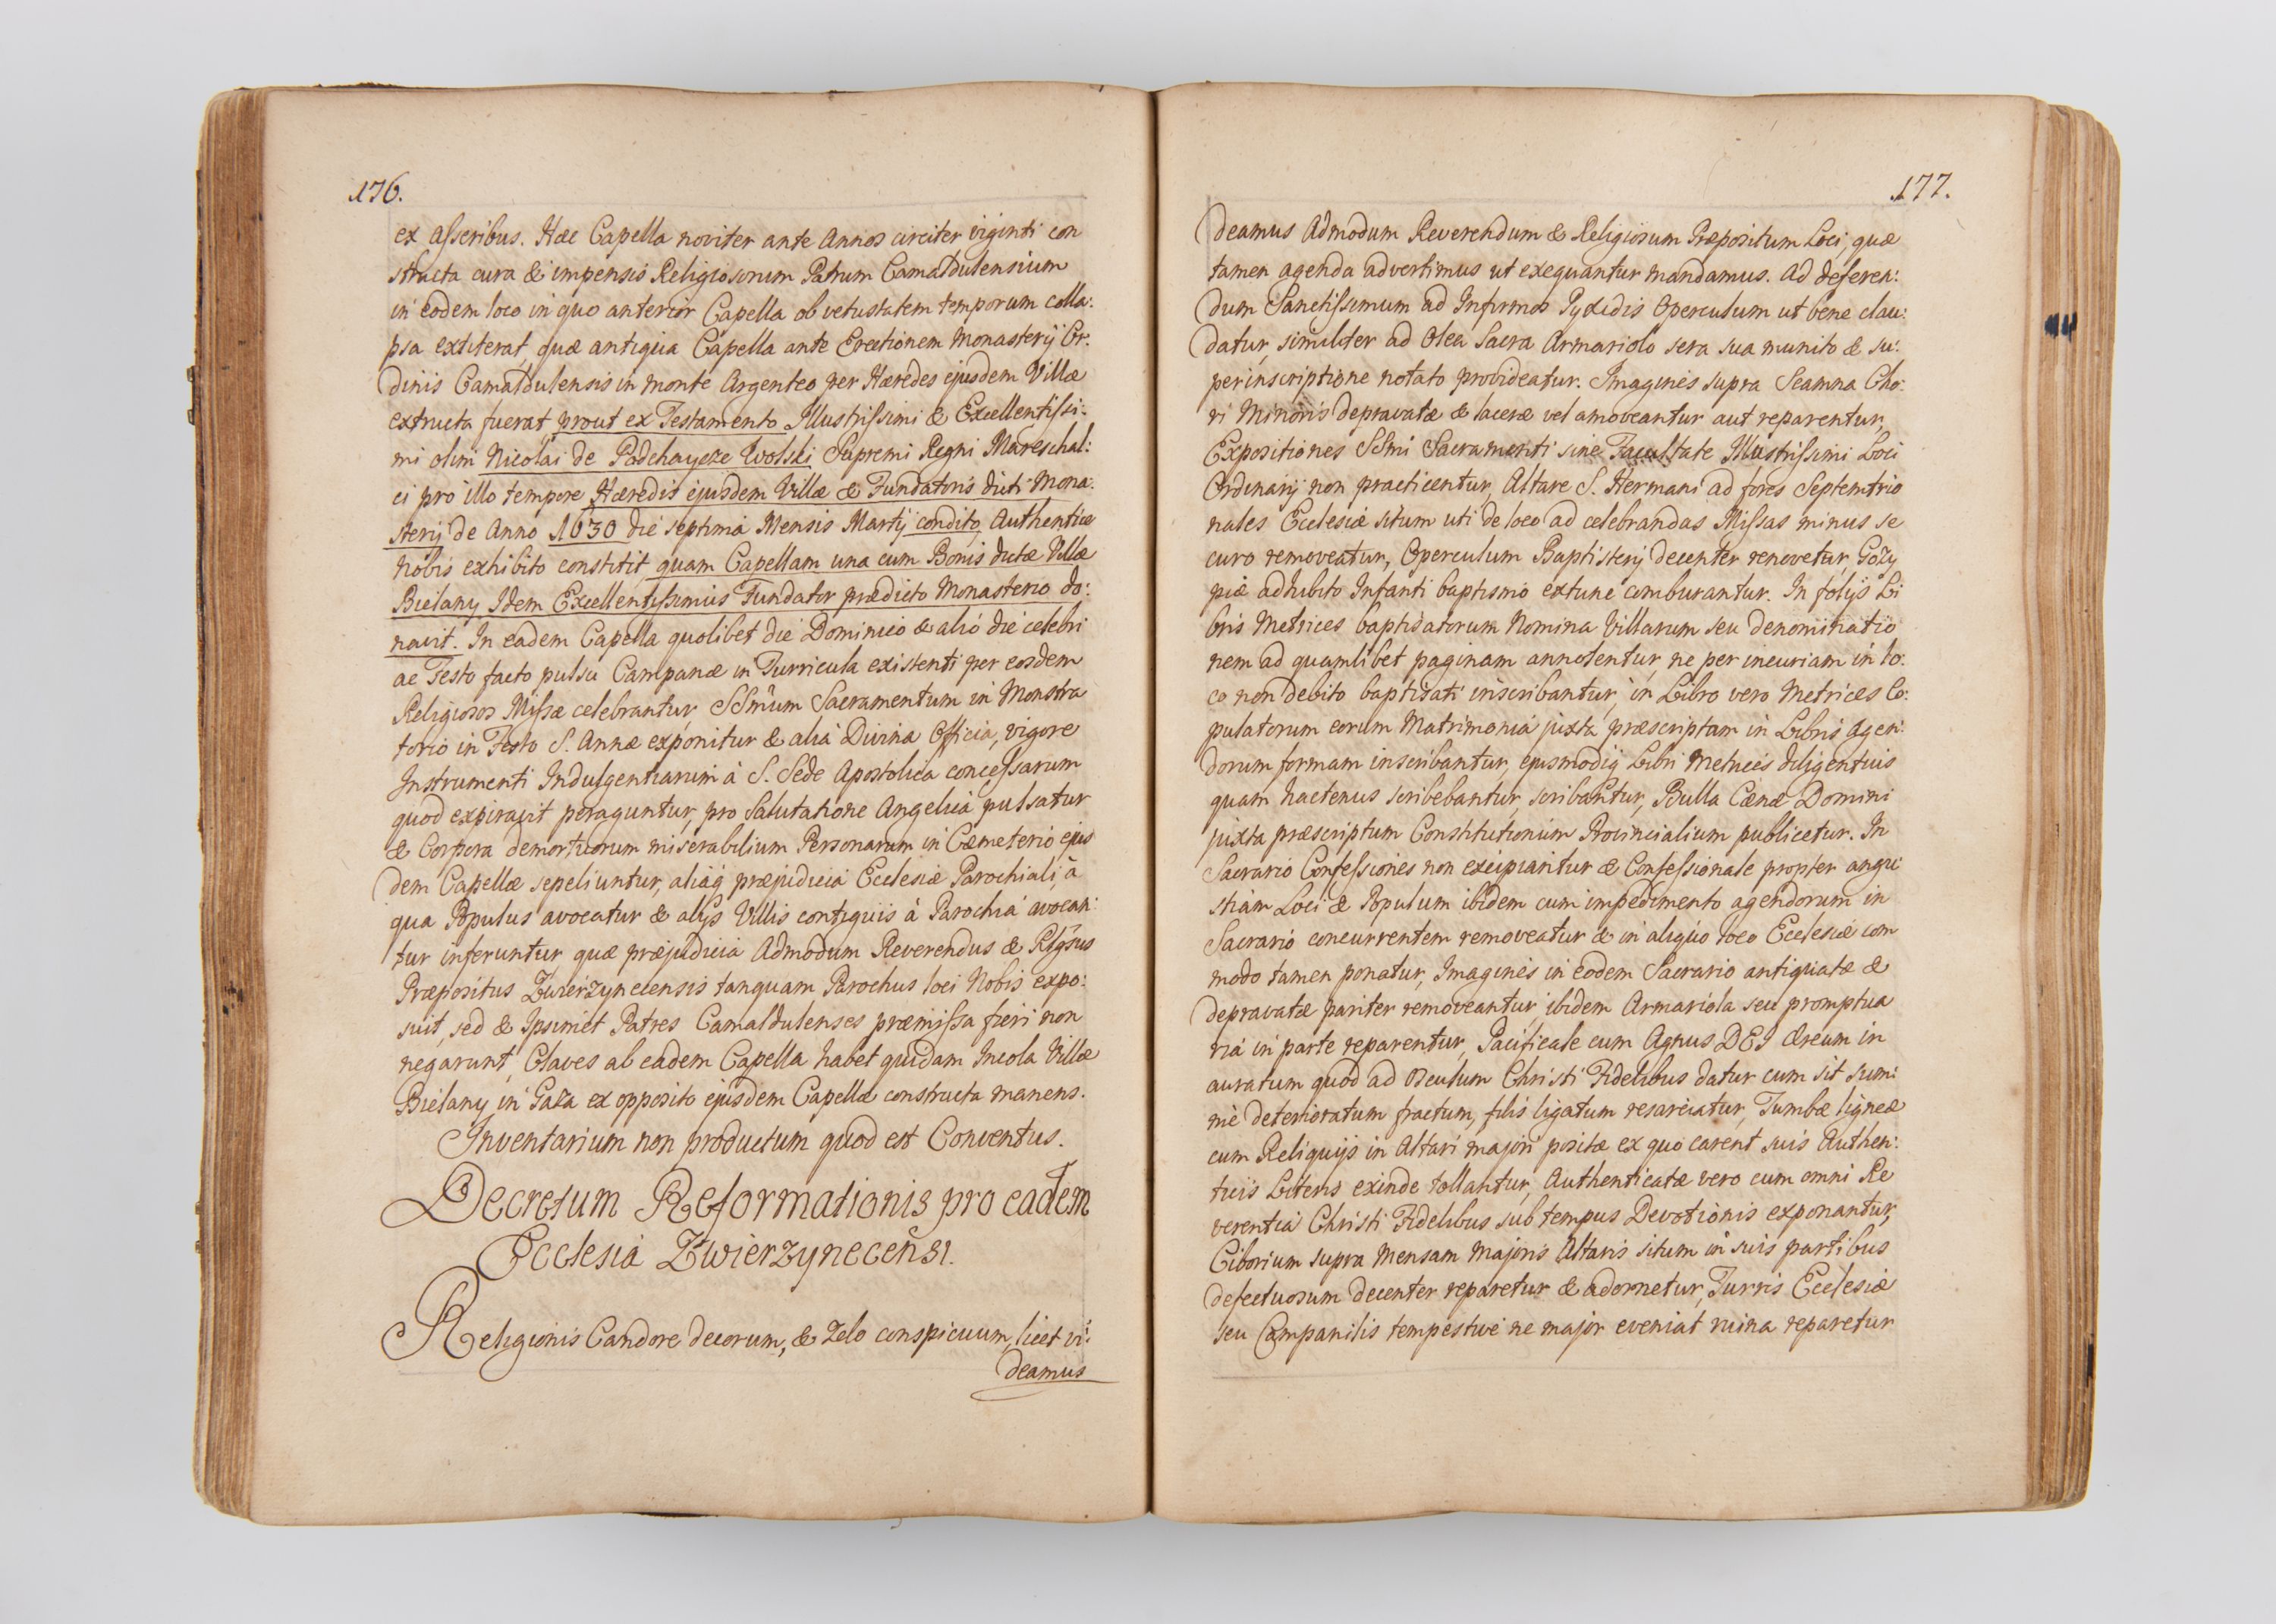 176.
ex asseribus. Hæc Capella noviter ante Annos circiter viginti con
structa cura & impensis Religiosorum Patrum Camaldulensium
in eodem loco in quo anterior Capella ob vetustatem temporum colla:
psa extiterat, quæ antiqua Capella ante Erectionem Monasterij Or:
dinis Camaldulensis in monte Argenteo per Hæredes ejusdem Villæ
extructa fuerat prout ex Testamento Illustrissimi & Excellentissi:
mi olim Nicolai de Podehaycze Wolski Supremi Regni Mareschal:
ci pro illo tempore Hæredis ejusdem Villæ & Fundatoris dicti Mona:
sterij de Anno 1630 die septima Mensis Martij condito, Authentice
Nobis exhibito constitit, quam Capellam una cum Bonis dictæ Villæ
Bielany Idem Excellentissimus Fundator prædicto Monasterio do:
navit. In eadem Capella quolibet die Dominico & alio die celebri
ac Festo facto pulsu Campanæ in Turricula existenti per eosdem
Religiosos Missæ celebrantur, SSmum Sacramentum in Monstra
torio in Festo S. Annæ exponitur & alia Divina Officia, vigore
Instrumenti Indulgentiarum à S. Sede Apostolica concessarum
quod expiravit peraguntur, pro Salutatione Angelica pulsatur
& Corpora demortuorum miserabilium Personarum in Cæmeterio ejus
dem Capellæ sepeliuntur, aliaq præjudicia Ecclesiæ Parochiali, à
qua Populus avocatur & alijs Villis contiguis à Parochia avocan:
tur inferuntur quæ præjudicia Admodum Reverendus & Rlgsus
Præpositus Zwierzynecensis tanquam Parochus loci Nobis expo:
suit, sed & Ipsimet Patres Camaldulenses præmissa fieri non
negarunt, Claves ab eadem Capella habet quidam Incola Villæ
Bielany in Gaza ex opposito ejusdem Capellæ constructa manens.
Inventarium non productum quod est Conventus.
Decretum Reformationis pro eadem
Ecclesia Zwierzynecensi.
Religionis Candore decorum, & Zelo conspicuum, licet vi:
deamus
177.
deamus Admodum Reverendum & Religiosum Præpositum Loci, quæ
tamen agenda advertimus ut exequantur mandamus. Ad deferen:
dum Sanctissimum ad Infirmos Pyxidis Operculum ut bene clau:
datur, similiter ad Olea Sacra Armariolo sera sua munito & su:
perinscriptione notato provideatur. Imagines supra Scamna Cho:
ri Minoris depravatæ & laceræ vel amoveantur aut reparentur,
Expositiones SSmi Sacramenti sine Facultate Illustrissimi Loci
Ordinarij non practicentur, Altare S. Hermani ad fores Septemtrio
nales Ecclesiæ situm uti de loco ad celebrandas Missas minus se
curo removeatur, Operculum Baptisterij decenter renovetur, Gozy
piæ adhibito Infanti baptismo extunc comburantur. In folijs Li
bris Metrices baptisatorum Nomina Villarum seu denominatio
nem ad quamlibet paginam annotentur, ne per incuriam in lo:
co non debito baptisati inscribantur, in Libro vero Metrices Co:
pulatorum eorum Matrimonia juxta præscriptam in Libris Agen:
dorum formam inscribantur, ejusmodiq Libri Metrices diligentius
quam hactenus scribebantur, scribantur, Bulla Cænæ Domini
juxta præscriptum Constitutionum Provincialium publicetur. In
Sacrario Confessiones non excipiantur & Confessionale propter angu:
stiam Loci & Populum ibidem cum impedimento agendorum in
Sacrario concurrentem removeatur & in aliquo loco Ecclesiæ com
modo tamen ponatur, Imagines in eodem Sacrario antiquatæ &
depravatæ pariter removeantur, ibidem Armariola seu promptua
ria in parte reparentur, Pacificale cum Agnus DEI Æreum in
auratum quod ad osculum Christi Fidelibus datur cum sit sum:
mè deterioratum fractum, filis ligatum resarciatur, Tumbæ ligneæ
cum Reliquijs in Altari majori positæ ex quo carent suis Authen:
ticis Literis exinde tollantur, Authenticatæ vero cum omni Re
verentia Christi Fidelibus sub tempus Devotionis exponantur,
Ciborium supra Mensam Majoris Altaris situm in suis partibus
defectuosum decenter reparetur & adornetur, Turris Ecclesiæ
seu Campanilis tempestive ne major eveniat ruina reparetur